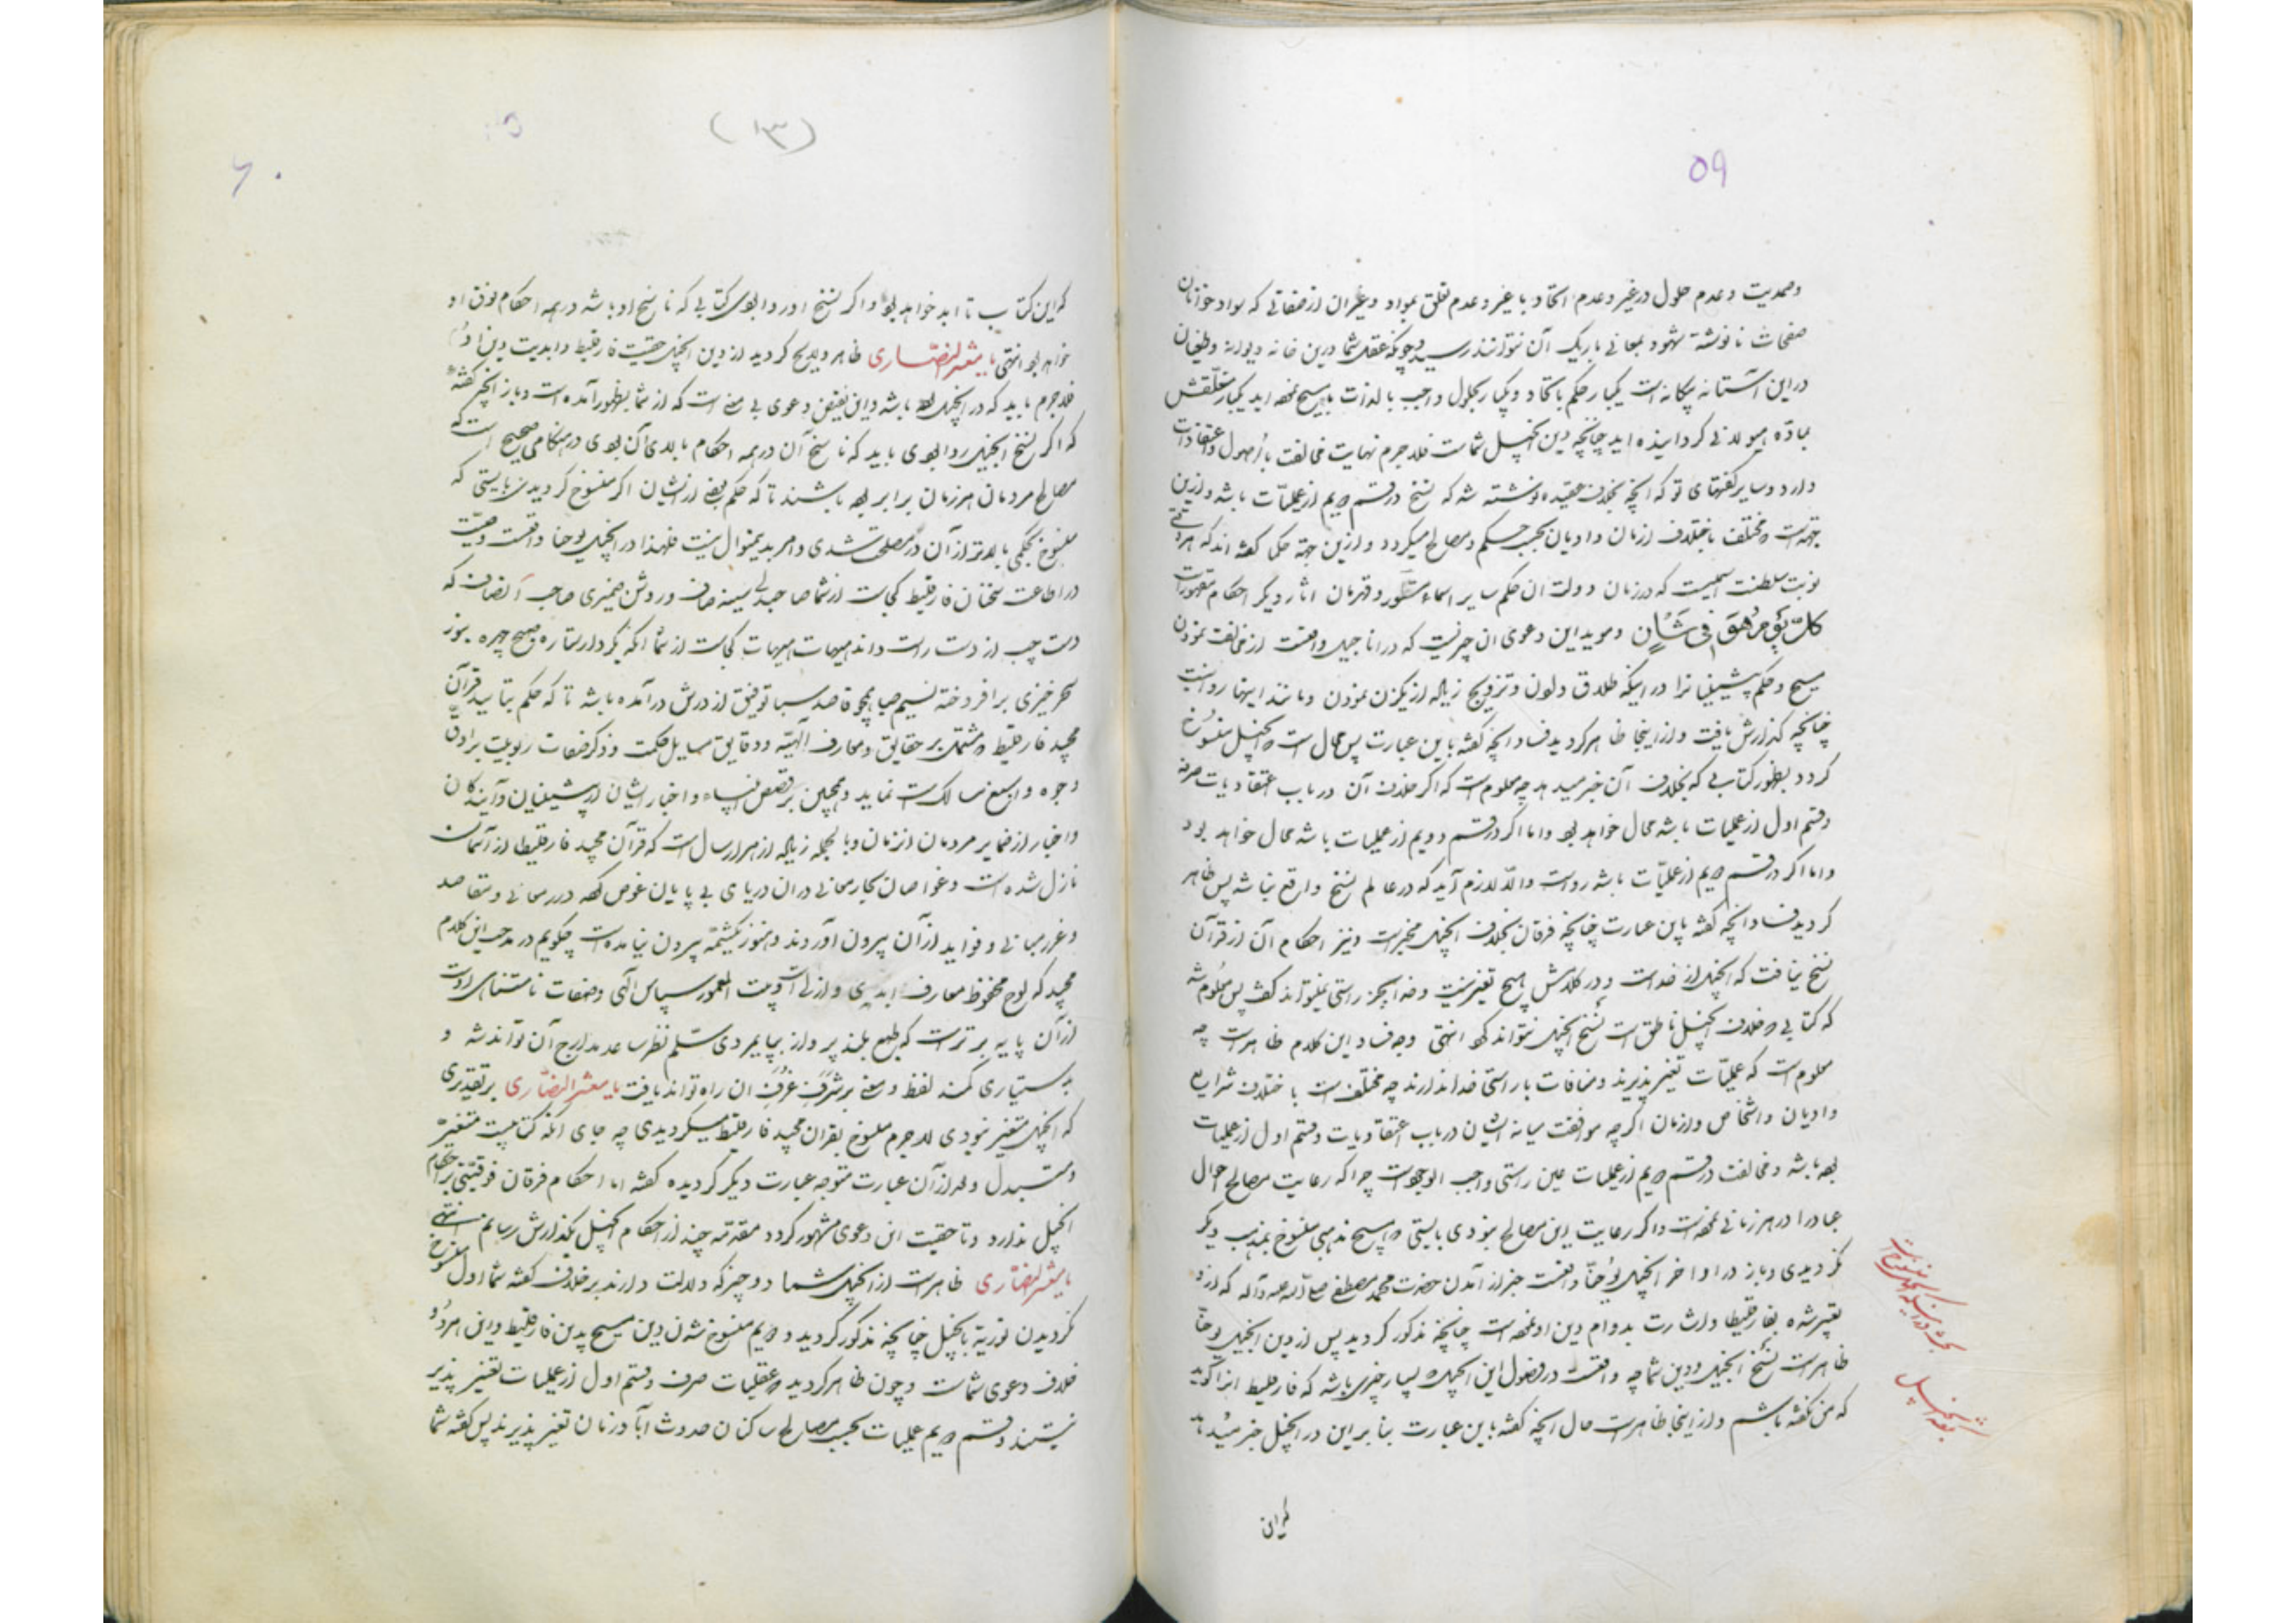 ۵۹
وصمدیت و عدم حلول در غیر و عدم اتحاد با غیر و عدم تعلق بمواد و غیر آن از صفاتی که سواد خوانان
صفحات نانوشته شهود بمعانی باریک آن نتوانند رسید و چونکه عقل شما درین خانه دیوانه و طفیلی آن
در این آستانه بیگانه است یکبار حکم باتحاد و یکبار بحلول واجب بالذات با مسیح نموده اید یکبار متعلقش
بمادّه هیولانی گردانیده اید چنانچه دین انجیل شماست فلاجرم نهایت مخالفت با اصول و اعتقادات
دارد و سایر گفتهای تو که آنچه بخلاف عقیده نوشته شد که نسخ در قسم دویم از عملیّات باشد و ازین
جهتست که مختلف باختلاف ازمان و ادیان بحسب حِکَم و مصالح میگردد و ازین جهة حکما گفته اند که هر وقتی
نوبت سلطنت اسمیست که در زمان دولت آن حکم سایر اسماء مستور و قهرمان آثار دیگر احکام مقهورات
کلّ یَوْمٍ هُوَ فی شَأنٍ و موید این دعوی آن چیزیست که در اناجیل واقعست از مخالفت نمودن
مسیح و حکم پیشینیانرا در اینکه طلاق دادن و تزویج زیاده از یکزن نمودن و مانند اینها روا نیست
چنانچه گذارش یافت و از اینجا ظاهر گردید فساد آنچه گفته باین عبارت پس محال است که انجیل منسوخ
گردد بظهور کتابی که بخلاف آن خبر میدهد چه معلوم است که اگر خلاف آن در باب اعتقادیات صرفه
و قسم اول از عملیات باشد محال خواهد بود و اما اگر در قسم دویم از عملیات باشد محال خواهد بود
و اما اگر در قسم دویم از عملیّات باشد رواست و الّا لازم آید که در عالم نسخ واقع نباشد پس ظاهر
گردید فساد آنچه گفته باین عبارت چنانچه فرقان بخلاف انجیل مخبر است و نیز احکام آن از قرآن
نسخ نیافت که انجیل از خداست و در کلامش هیچ تغیر نیست و خدا بجز راستی نمیتواند گفت پس معلوم شد
که کتابی که خلاف انجیل ناطق است نسخ انجیل نتواند کرد انتهی وجه فساد این کلام ظاهر است چه
معلوم است که عملیّات تغیر پذیرند و منافات با راستی خدا ندارند چه مختلف است با ختلاف شرایع
و ادیان و اشخاص و ازمان اگرچه موافقت میانه ایشان در باب اعتقادیات و قسم اول از عملیات
بوده باشد و مخالفت در قسم دویم از عملیات عین راستی واجب الوجود است چرا که رعایت مصالح احوال
عباد را در هر زمانی نموده است و اگر رعایت این مصالح نبودی بایستی که هیچ مذهبی منسوخ بمذهب دیگر
نگردیدی و باز در اواخر انجیل یوحنّا واقعست خبر از آمدن حضرت محمد مصطفی صلی الله علیه و آله که از او
تعبیر شده بفارقلیطا و اشارت بدوام دین او نموده است چنانچه مذکور گردید پس از دین انجیل یوحنّا
ظاهر است نسخ انجیل و دین شما چه واقعست در فصول این انجیل که بسیار چیزی باشد که فارقلیط آنرا گوید
که من نگفته باشم و از اینجا ظاهر است حال آنچه گفته باین عبارت بنا بر این در انجیل خبر میدهد
که این
(۱۳)
۶۰
که این کتاب تا ابد خواهد بود و اگر نسخ او روا بودی کتابی که ناسخ او باشد در همه احکام فوق او
خواهد بود انتهی یا معشر النصّاری ظاهر و لایح گردید از دین انجیل حقیت فارقلیط و ابدیت دین او
فلاجرم باید که در انجیل بوده باشد و این نقیض دعوی بی معنی است که از شما بظهور آمده است و باز آنچه گفته
که اگر نسخ انجیل روا بودی باید که ناسخ آن در همه احکام بالای آن بودی در هنگامی صحیح است که
مصالح مردمان هر زمان برابر بوده باشند تا که حکم بعضی از ایشان اگر منسوخ گردیدی بایستی که
منسوخ بحکمی بالاتر از آن در مصلحت شدی و امر بدینمنوال نیست فلهذا در انجیل یوحنا واقعست وصیّت
در اطاعت سخنان فارقلیط کجاست از شما صاحبدلی سینه صاف و روشن ضمیری صاحب انصاف که
دست چپ از دست راست داند هیهات هیهات کجاست از شما آنکه کردار ستاره صبح چهره بنور
سحر خیزی برافروخته نسیم صبا همچو قاصد سبا توفیق از درش درآمده باشد تا که حکم بتأیید قرآن
مجید فارقلیط که مشتمل بر حقایق و معارف الهیّه و دقایق مسایل حکمت و ذکر صفات ربوبیت بر ادقّ
وجوه و ابدع مسالک است نماید و همچنین بر قصص انبیاء و اخبار ایشان از پیشینیان و آیندگان
و اخبار از ضمایر مردمان از زمان و بالجمله زیاده از هزار سال است که قرآن مجید فارقلیط از آسمان
نازل شده است و غواصان بحار معانی در آن دریای بی پایان غوص کرده درر معانی و مقاصد
و غرر مبانی و فواید از آن بیرون آوردند و هنوز یکشمّه بیرون نیامده است چگویم در مدحت این کلام
مجید که لوح محفوظ معارف ابدی و ازلی است و بیت المعمور سپاس الهی و صفات نامتناهی اوست
از آن پایه برتر است که طبع بلند پرواز بپایمردی سلّم نظر مساعد مدارج آن تواند شد و
بدستیاری کمند لفظ و معنی بر شُرَفِ غُرَفِ آن راه تواند یافت یا معشر النصّاری بر تقدیری
که انجیل متغیر نبودی لاجرم منسوخ بقرآن مجید فارقلیط میگردیدی چه جای آنکه کتابیست متغیّر
و متبدل و بعد از آن عبارت متوجه عبارت دیگر گردیده گفته اما احکام فرقان فوقیتی بر احکام
انجیل ندارد و تا حقیت این دعوی مشهور گردد مقدّمه چند از احکام انجیل بگذارش رسانم انتهی
یا معشر النصّاری ظاهر است از انجیل شما دو چیز که دلالت دارند بر خلاف گفته شما اول منسوخ
گردیدن توریة بانجیل چنانچه مذکور گردید و دویم منسوخ شدن دین مسیح بدین فارقلیط و این هر دو
خلاف دعوی شماست و چون ظاهر گردید که عقلیات صرف و قسم اول از عملیات تغیر پذیر
نیستند و قسم دویم عملیات بحسب مصالح ساکنان حدوث آباد زمان تغیر پذیرند پس گفته شما